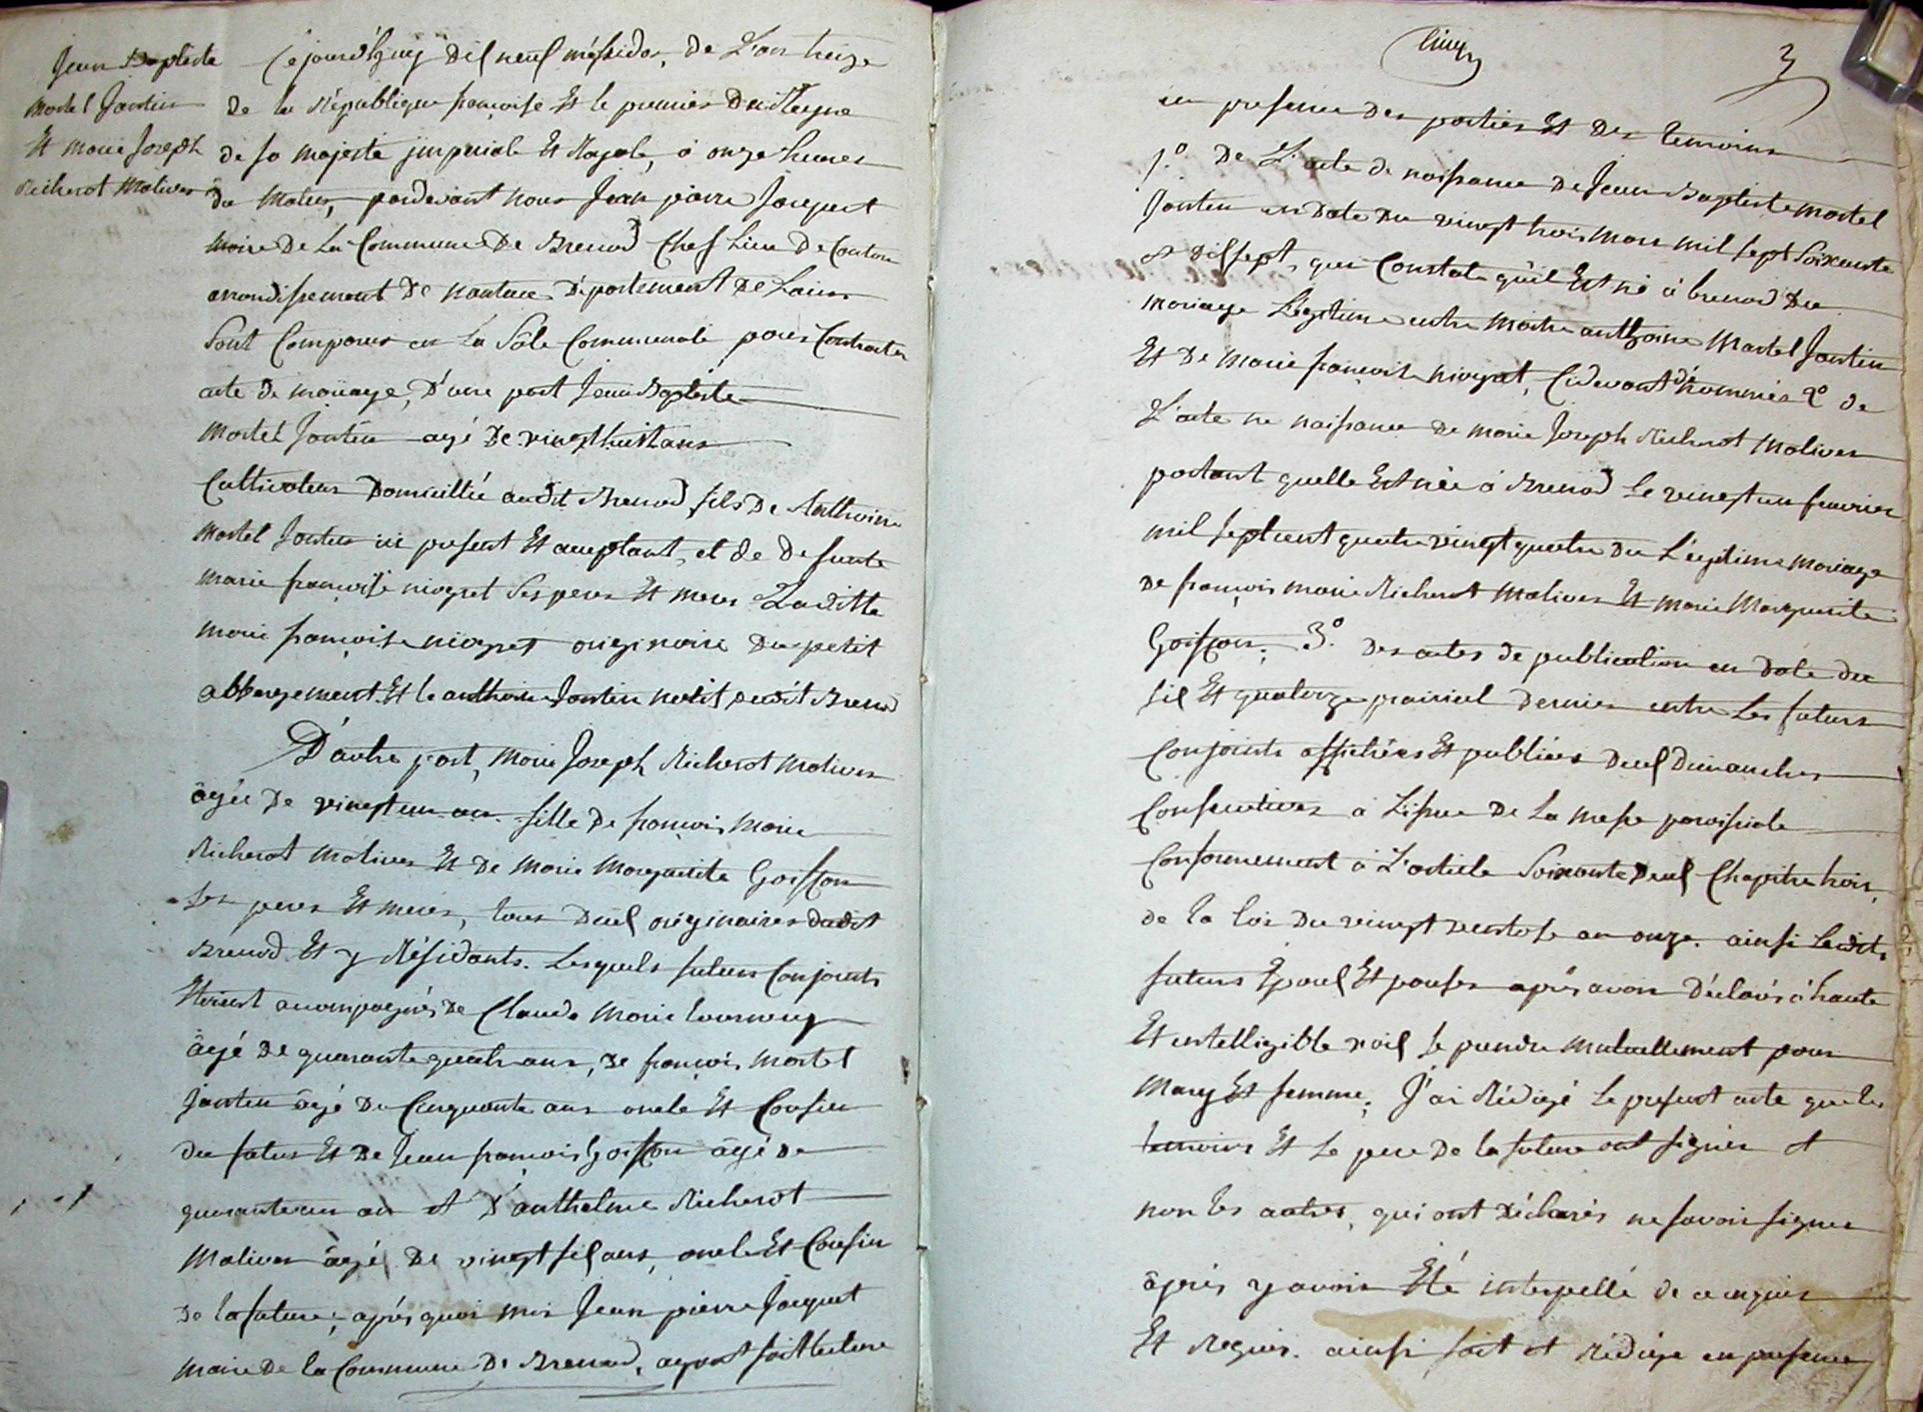 Jean Baptiste
Martel Jantin
Et marie Joseph
Richerot Malivers
Cejourd'huy dix neuf méssidor, de L'an treize
de la République françoise Et le premier Du Regne
de sa majesté jmperiale Et Royale, à onze heures
du matin, pardevant nous Jean pierre Jacquet
maire De La Commune De Brenod Chef Lieu De Canton
arrondissement De nantua Département De Lain
Sont Comparus en La Sâle Communale pour Contracter
acte de mariage, D'une part Jean Baptiste
Martel Jantin agé De vingt huit ans
Cultivateur Domicillié audit Brenod fils De Anthoine
Martel Jantin ici present Et acceptant, et de defunte
marie françoise niogret Ses peres Et meres Laditte
marie françoise niogret originaire Du petit
abbergement Et le anthoine Jantin natif dudit Brenod
D'autre part, Marie Joseph Richerot Malivers
âgée De vingt un an fille De françois marie
Richerot Malivers Et De Marie Marguerite Goiffon
Ses peres Et meres, tous Deux originaires dudit
Brenod Et y Résidants. Lesquels futurs Conjoints
Etoient accompagnés De Claude Marie
âgé de quarante quatre ans, De françois Martel
Jantin âgé De Cinquante ans oncle Et Cousin
du futur Et De Jean françois Goiffon âgé De
quarante un an et D'anthelme Richerot
Malivers âgé De vingt six ans, oncle Et Cousin
De la future; après quoi moi Jean pierre Jacquet
maire De la Commune De Brenod, ayant fait lecture
Cinq
3
en presence Des parties Et Des temoins
1.° De L'acte de naissance De Jean Baptiste Martel
Jantin en Date Du vingt trois mars mil sept Soixante
& dix sept, qui Constate qu'il Est né à brenod Du
mariage Légitime entre Maitre anthoine Martel Jantin
Et De Marie françoise niogret, Cidevant dénommés 2.° de
L'acte ne naissance De Marie Joseph Richerot Malivers
portant quelle Est née à Brenod Le vingt un fevrier
mil sept cent quatre vingt quatre Du Légitime mariage
De françois marie Richerot Malivers Et Marie Marguerite
Goiffon; 3.° Des actes de publication en Date du
six Et quatorze prairial dernier entre Les futurs
Conjoints affichées Et publiées Deux Dimanches
Consecutives à Lissue De La messe paroissiale
Conformement à L'article Soixante Deux Chapitre trois
de la loi Du vingt ventose an onze. ainsi Lesdits
futurs Époux Et pouse après avoir Déclarés à haute
Et intelligible voix Se prendre mutuellement pour
Mary Et femme; J'ai Rédigé Le present acte que les
temoins Et Le pere De la future ont signés et
non les autres, qui ont Déclarés ne savoir signer
après y avoir Été interpellé de ce enquis
Et Requis. ainsi fait et Rédigé en presence